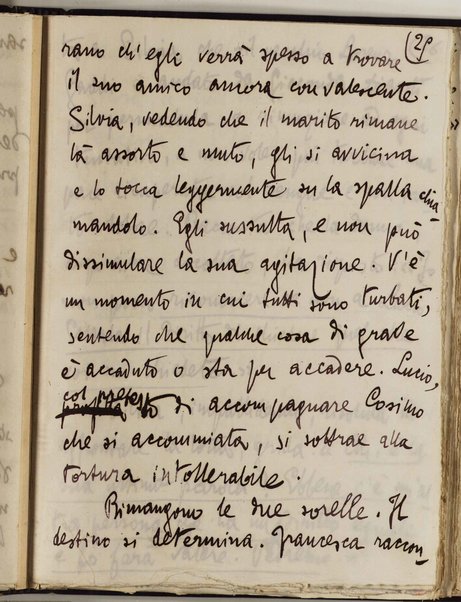 (29
rano ch'egli verrà spesso a trovare
il suo amico ancora convalescente.
Silvia, vedendo che il marito rimane
là assorto e muto, gli si avvicina
e lo tocca leggermente su la spalla chia-
mandolo. Egli sussulta, e non può
dissimulare la sua agitazione. V'è
un momento in cui tutti sono turbati,
sentendo che qualche cosa di grave
è accaduto o sta per accadere. Lucio,
col pretesto di accompagnare Cosimo
che si accommiata, si sottrae alla
tortura intollerabile.
Rimangono le due sorelle. Il
destino si determina. Francesca raccon-